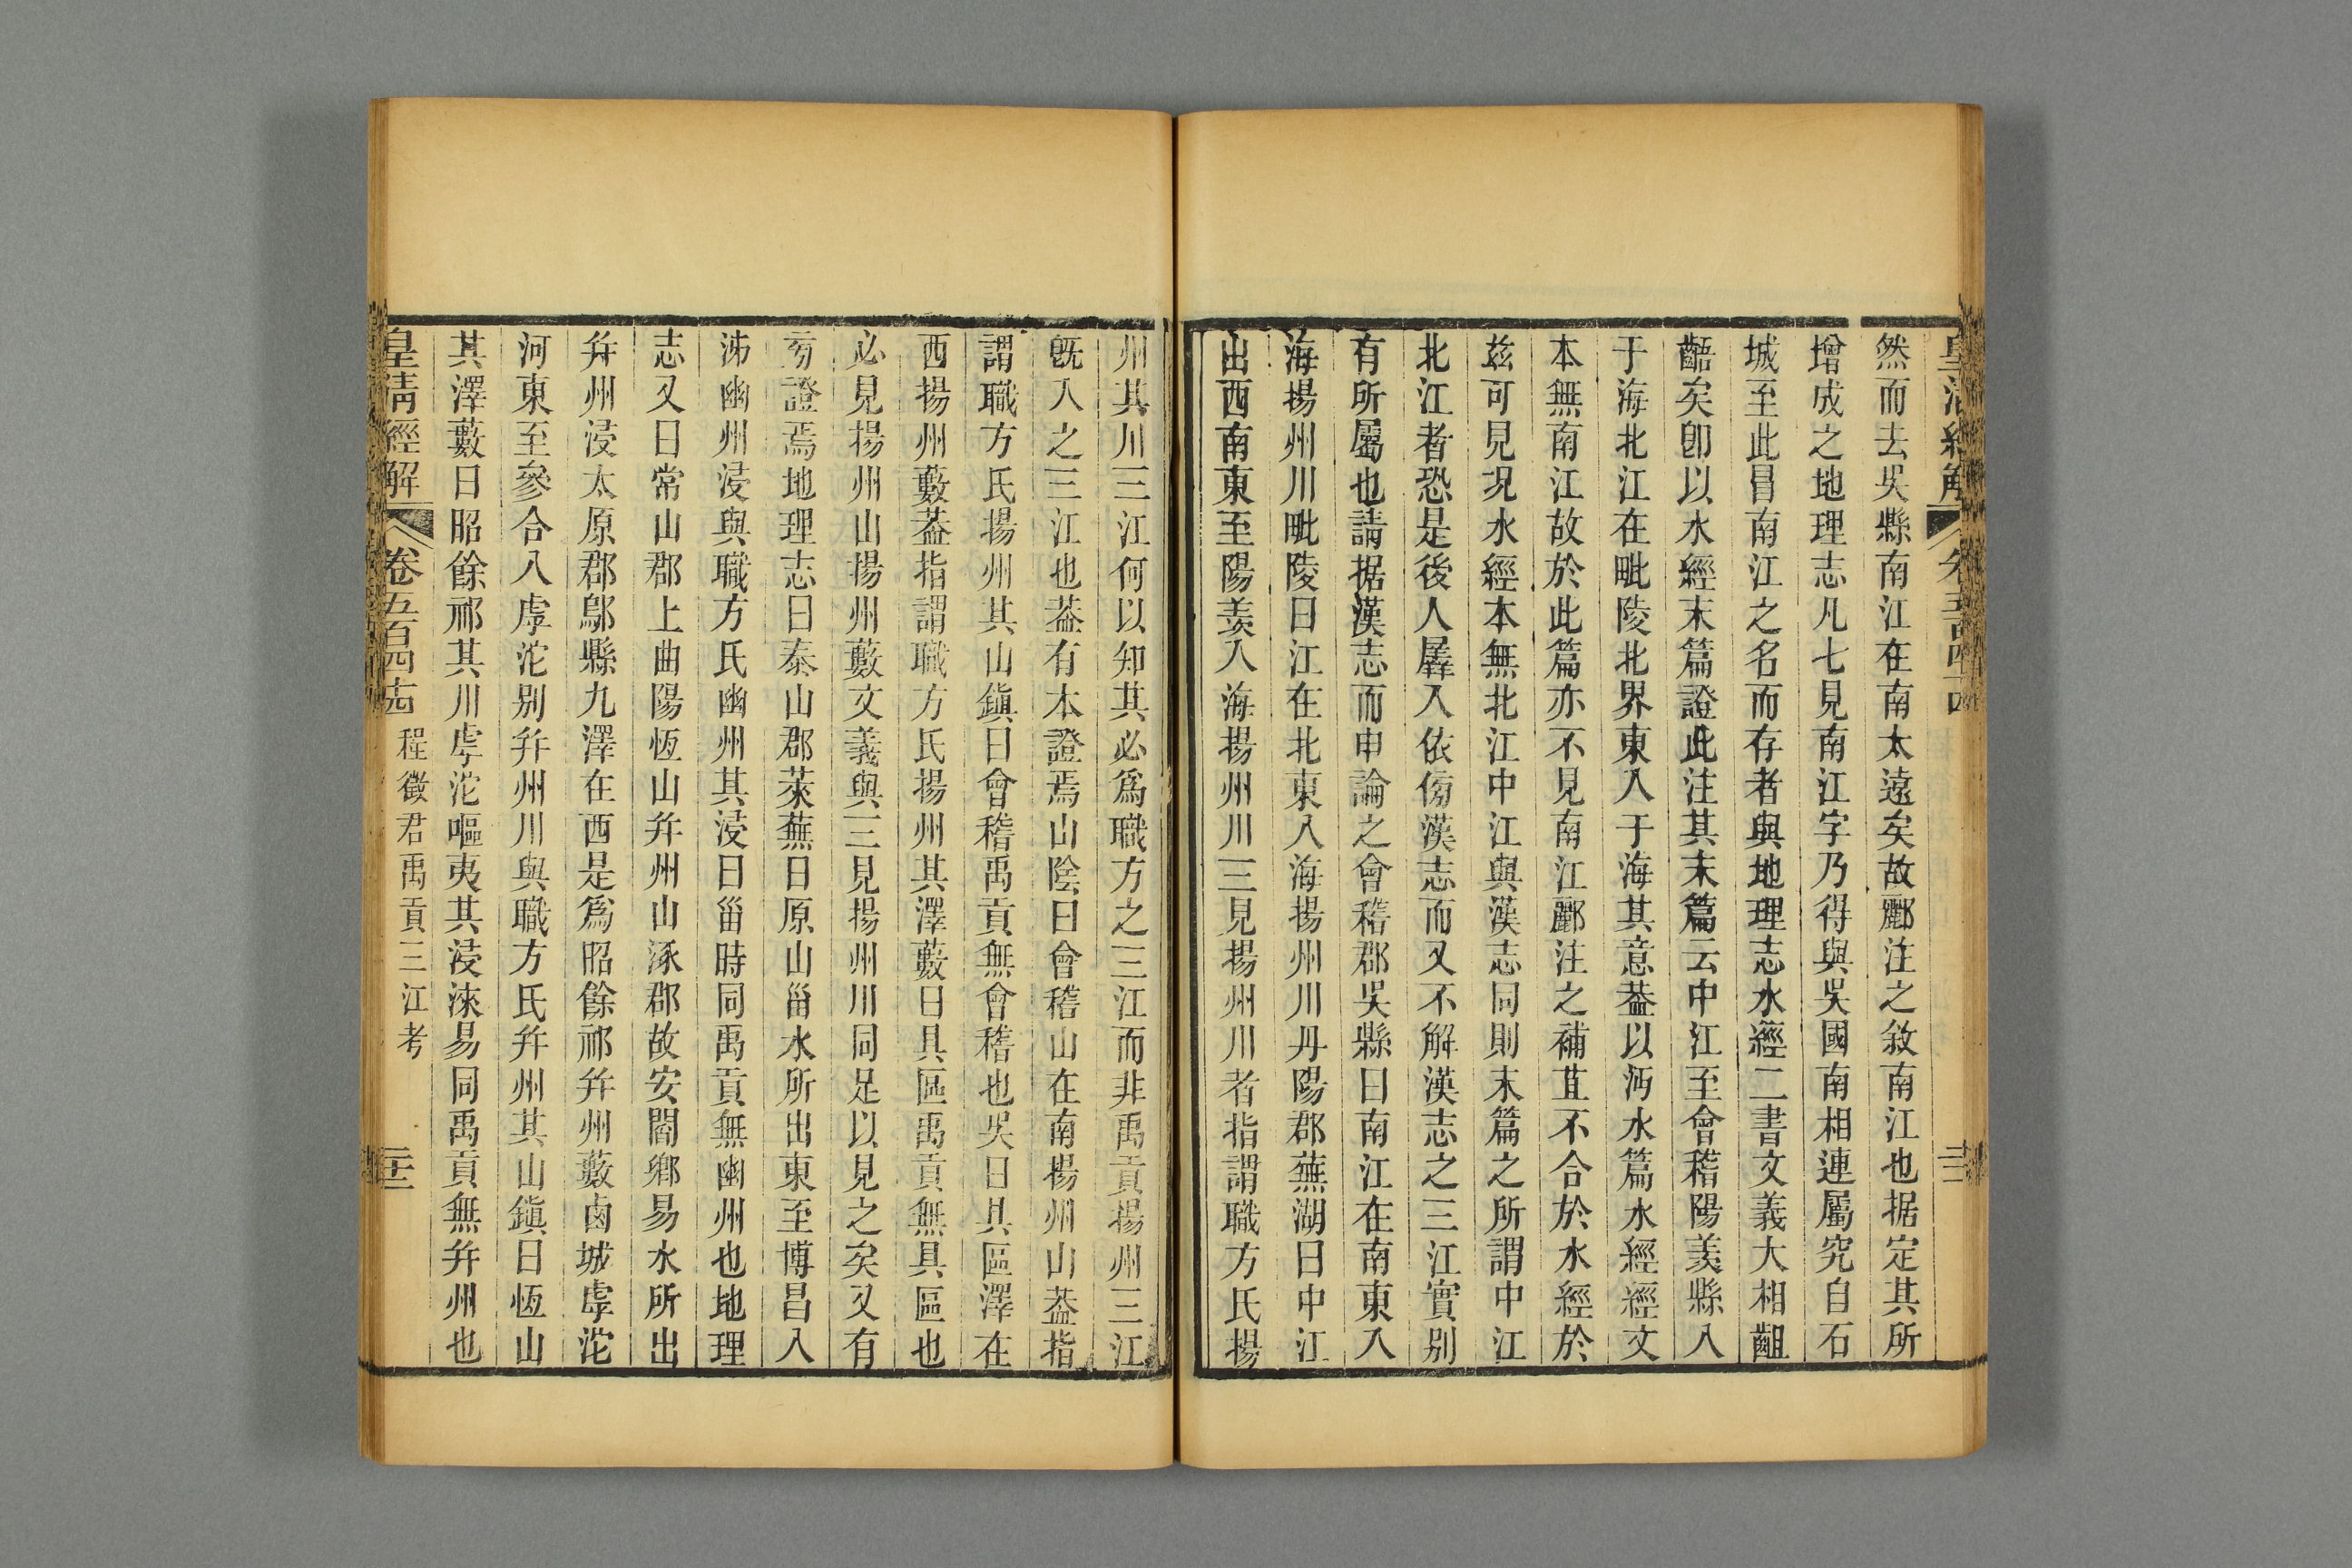 然而去吳縣南江在南太遠矣故酈注之敘南江也据定其所
增成之地理志凡七見南江字乃得與吳國南相連屬究自石
城至此冒南江之名而存者與地理志水經二書文義大相齟
齬矣卽以水經末篇證此注其末篇云中江至會稽陽羨縣入
于海北江在毗陵北界東入于海其意葢以沔水篇水經經文
本無南江故於此篇亦不見南江酈注之補苴不合於水經於
兹可見况水經本無北江中江與漢志同則末篇之所謂中江
北江者恐是後人羼入依傍漢志而又不解漢志之三江實别
有所屬也請据漢志而申論之會稽郡吳縣曰南江在南東入
海揚州川毗陵曰江在北東入海揚州川丹陽郡蕪湖曰中江
出西南東至陽羨入海揚州川三見揚州川者指謂職方氏揚
州其川三江何以知其必爲職方之三江而非禹貢揚州三江
旣入之三江也葢有本證焉山陰曰會稽山在南揚州山葢指
謂職方氏揚州其山鎭曰會稽禹貢無會稽也吳曰具區澤在
西揚州藪葢指謂職方氏揚州其澤藪曰具區禹貢無具區也
必見揚州山揚州藪文義與三見揚州川同足以見之矣又有
㫄證焉地理志曰泰山郡萊蕪曰原山甾水所出東至博昌入
泲幽州浸與職方氏幽州其浸曰甾時同禹貢無幽州也地理
志又曰常山郡上曲陽恆山幷州山涿郡故安閻鄉易水所出
幷州浸太原郡鄔縣九澤在西是爲昭餘祁幷州藪鹵城虖沱
河東至參合入虖沱别幷州川與職方氏幷州其山鎭曰恆山
其澤藪曰昭餘祁其川虖沱嘔夷其浸淶易同禹貢無幷州也
皇清經解 卷五百四十四 程徵君禹貢三江考 二十三